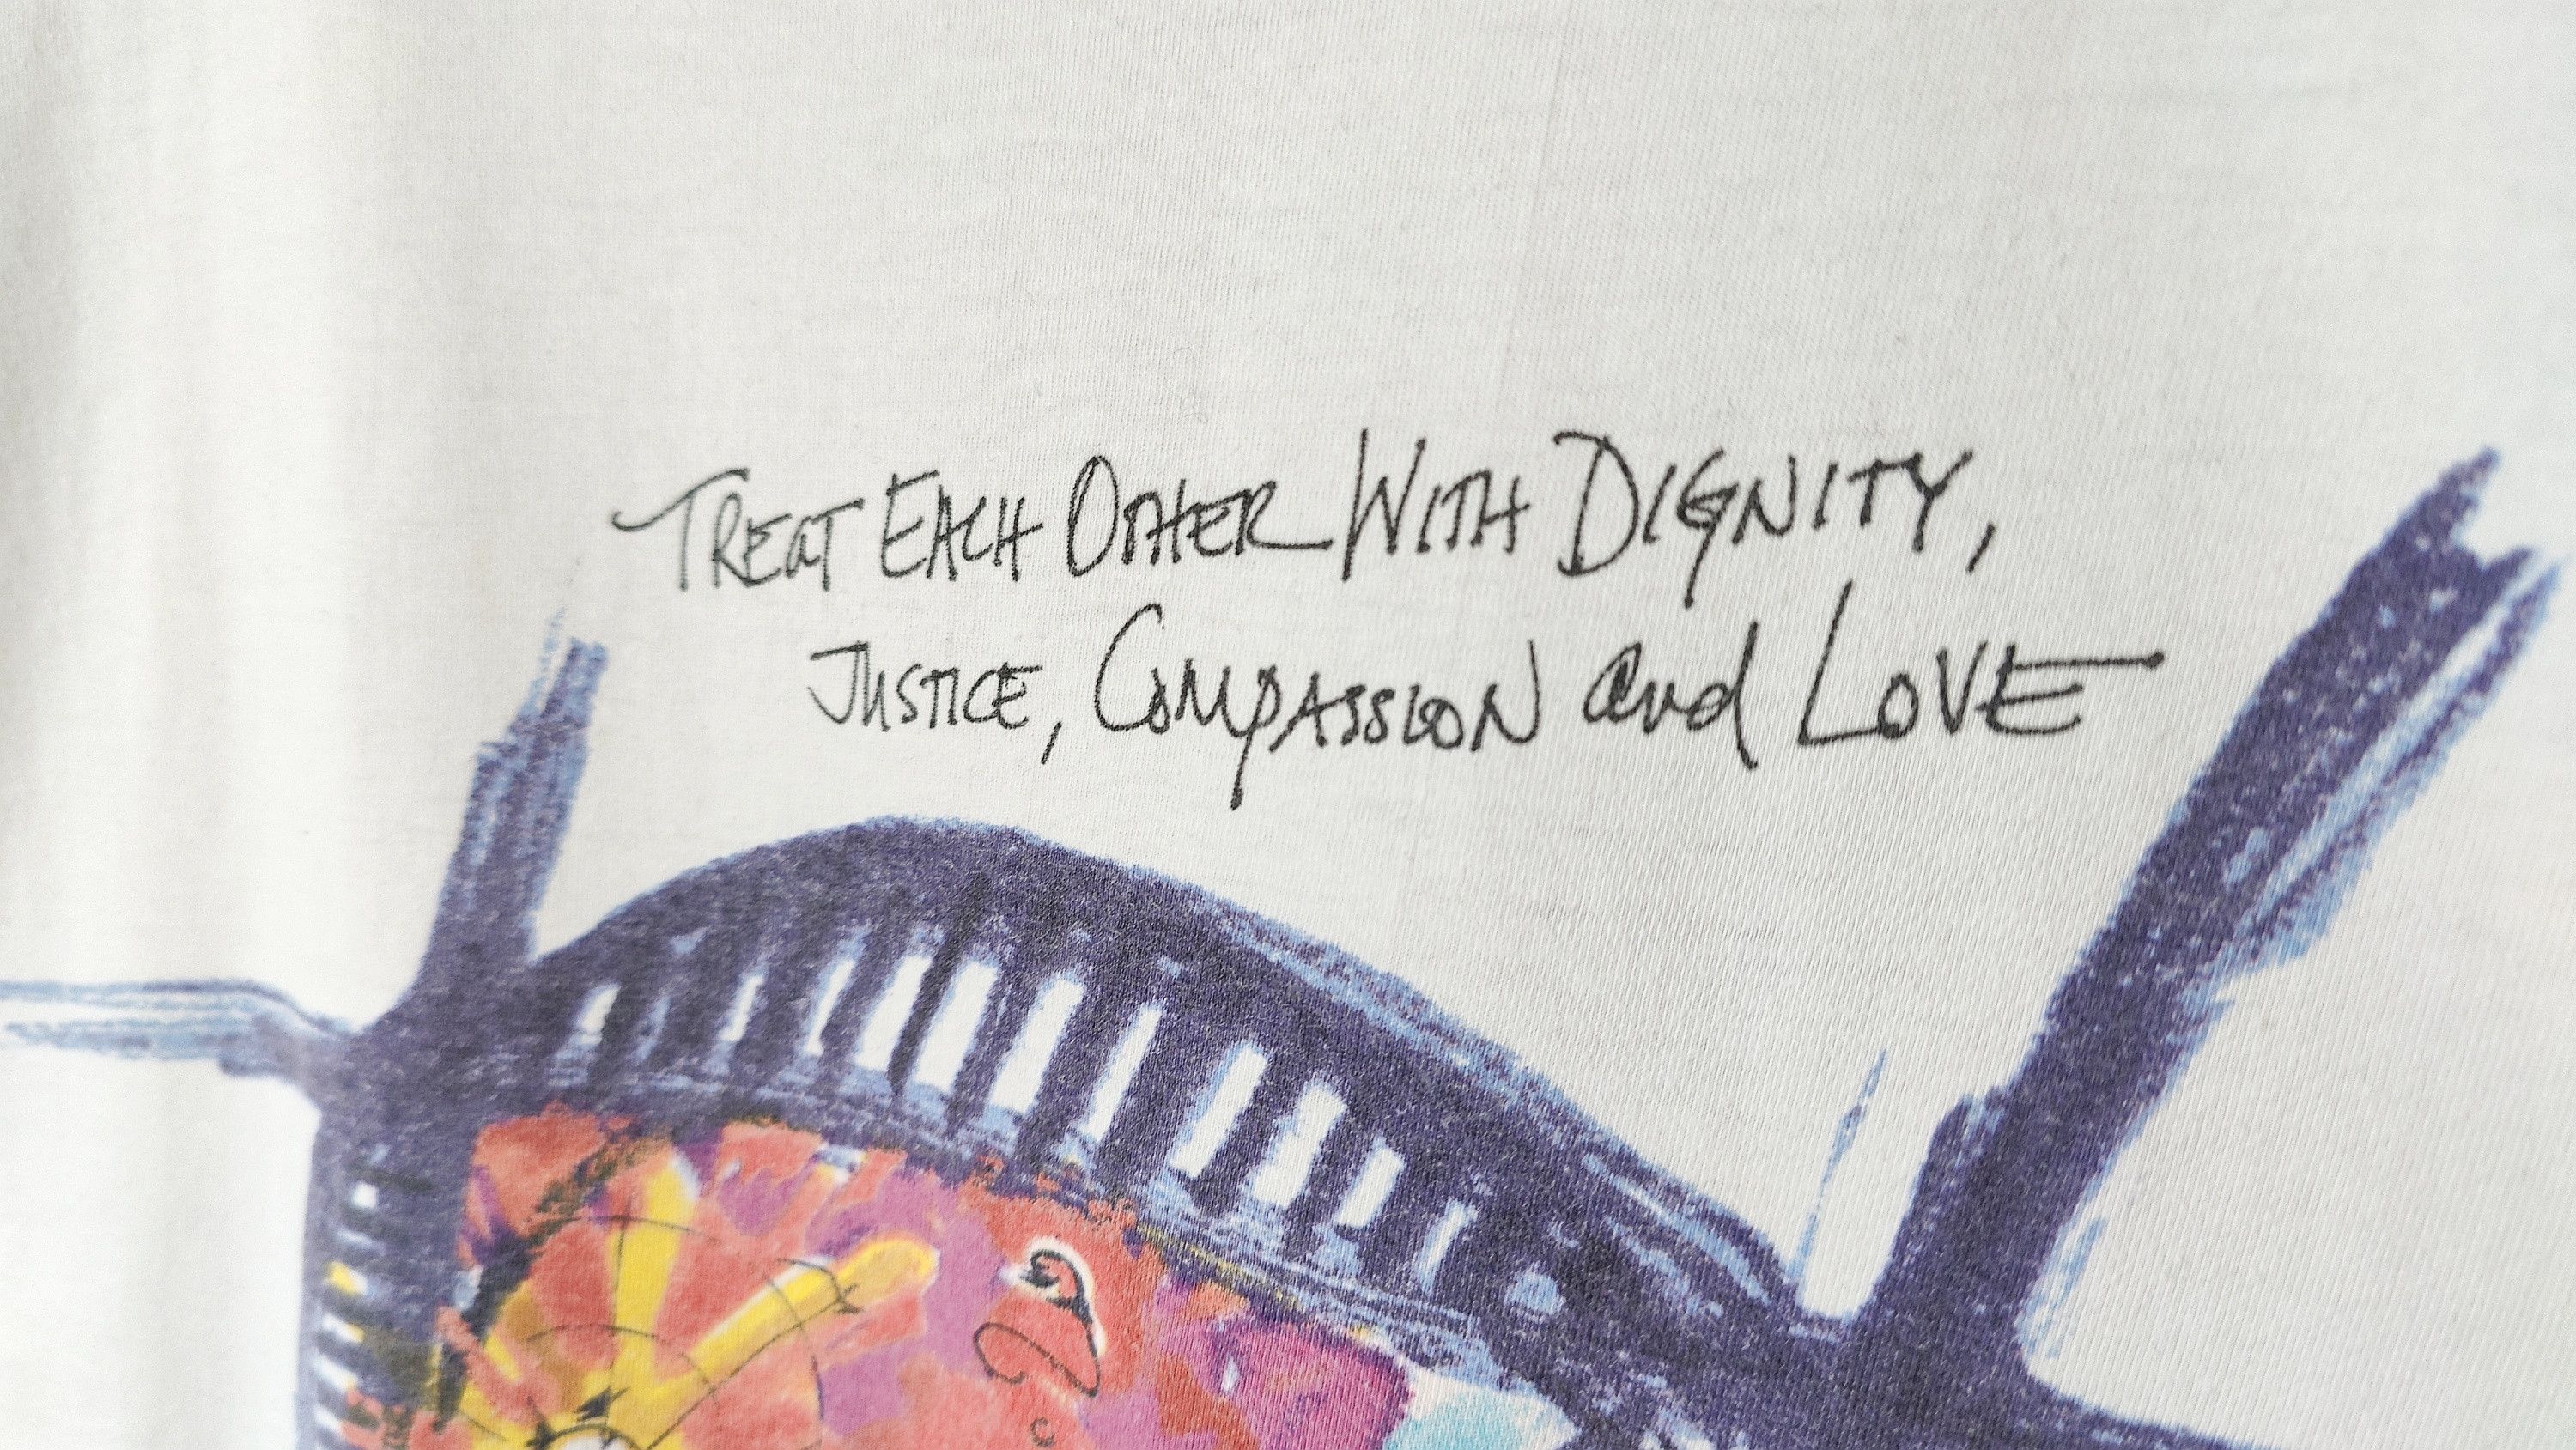 TREAT EACH OTHER WITH DIGNITY,
JUSTICE, COMPASSION and LOVE